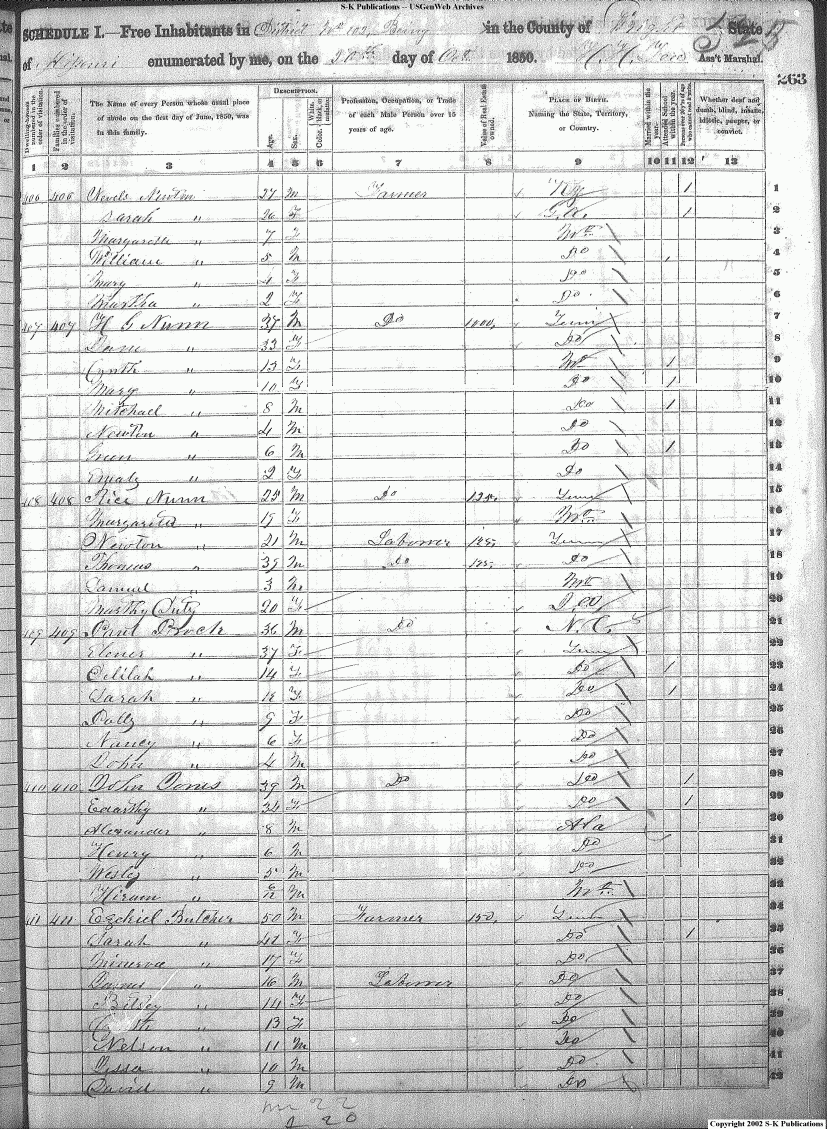 S-K Publications -- USGenWeb Archives
SCHEDULE I.—Free Inhabitants in District No 102, Being in the County of Wright State
of Missouri enumerated by me, on the 20th day of Oct 1850. H. H. Ass't Marshal.
263
Dwelling-houses numbered in the order of visitation.
Families numbered in the order of visitation.
The Name of every Person whose usual place of abode on the first day of June, 1850, was in this family.
Description.
Age.
Sex.
Color, White, black, or mulatto.
Profession, Occupation, or Trade of each Male Person over 15 years of age.
Value of Real Estate owned.
Place of Birth. Naming the State, Territory, or Country.
Married within the year.
Attended School within the year.
Persons over 20 y'rs of age who cannot read & write.
Whether deaf and dumb, blind, insane, idiotic, pauper, or convict.
1 2 3 4 5 6 7 8 9 10 11 12 13
406 406 Newton 27 M Farmer Ky 1 1
Sarah " 26 F Ga. 1 2
Margaret " 7 F Mo 3
William " 5 M Do 4
Mary " 4 F Do 5
Martha " 2 F Do 6
407 407 H G Nunn 37 M Do 1000 Tenn 7
" 33 F Do 8
Cynth " 13 F Mo 1 9
Mary " 10 F Do 1 10
Mitchael " 8 M Do 1 11
Newton " 4 M Do 12
Green " 6 M Do 1 13
" 2 F Do 14
408 408 Rice Nunn 25 M Do Tenn 15
Margaret " 19 F Mo 16
Newton " 21 M Laborer Tenn 17
Thomas " 39 M Do Do 18
Samuel " 3 M Mo 19
Marthy 20 F 20
409 409 Paul Brock 36 M Do N. C. 21
" 37 F Tenn 22
Delilah " 14 F Do 1 23
Sarah " 12 F Do 1 24
Dolly " 9 F Do 25
Nancy " 6 F Do 26
John " 4 M Do 27
410 410 John Jones 39 M Do Do 1 28
" 34 F Do 1 29
Alexander " 8 M Ala 30
Henry " 6 M Do 31
Wesley " 5 M Do 32
Hiram " 6/12 M Mo 33
411 411 Ezekiel Butcher 50 M Farmer 150 Tenn 34
Sarah " 42 F Do 1 35
Minerva " 17 F Do 36
" 16 M Laborer Do 37
Betsey " 14 F Do 38
" 13 F Do 39
Nelson " 11 M Do 40
" 10 M Do 41
David " 9 M Do 42
m 22
20
Copyright 2002 S-K Publications